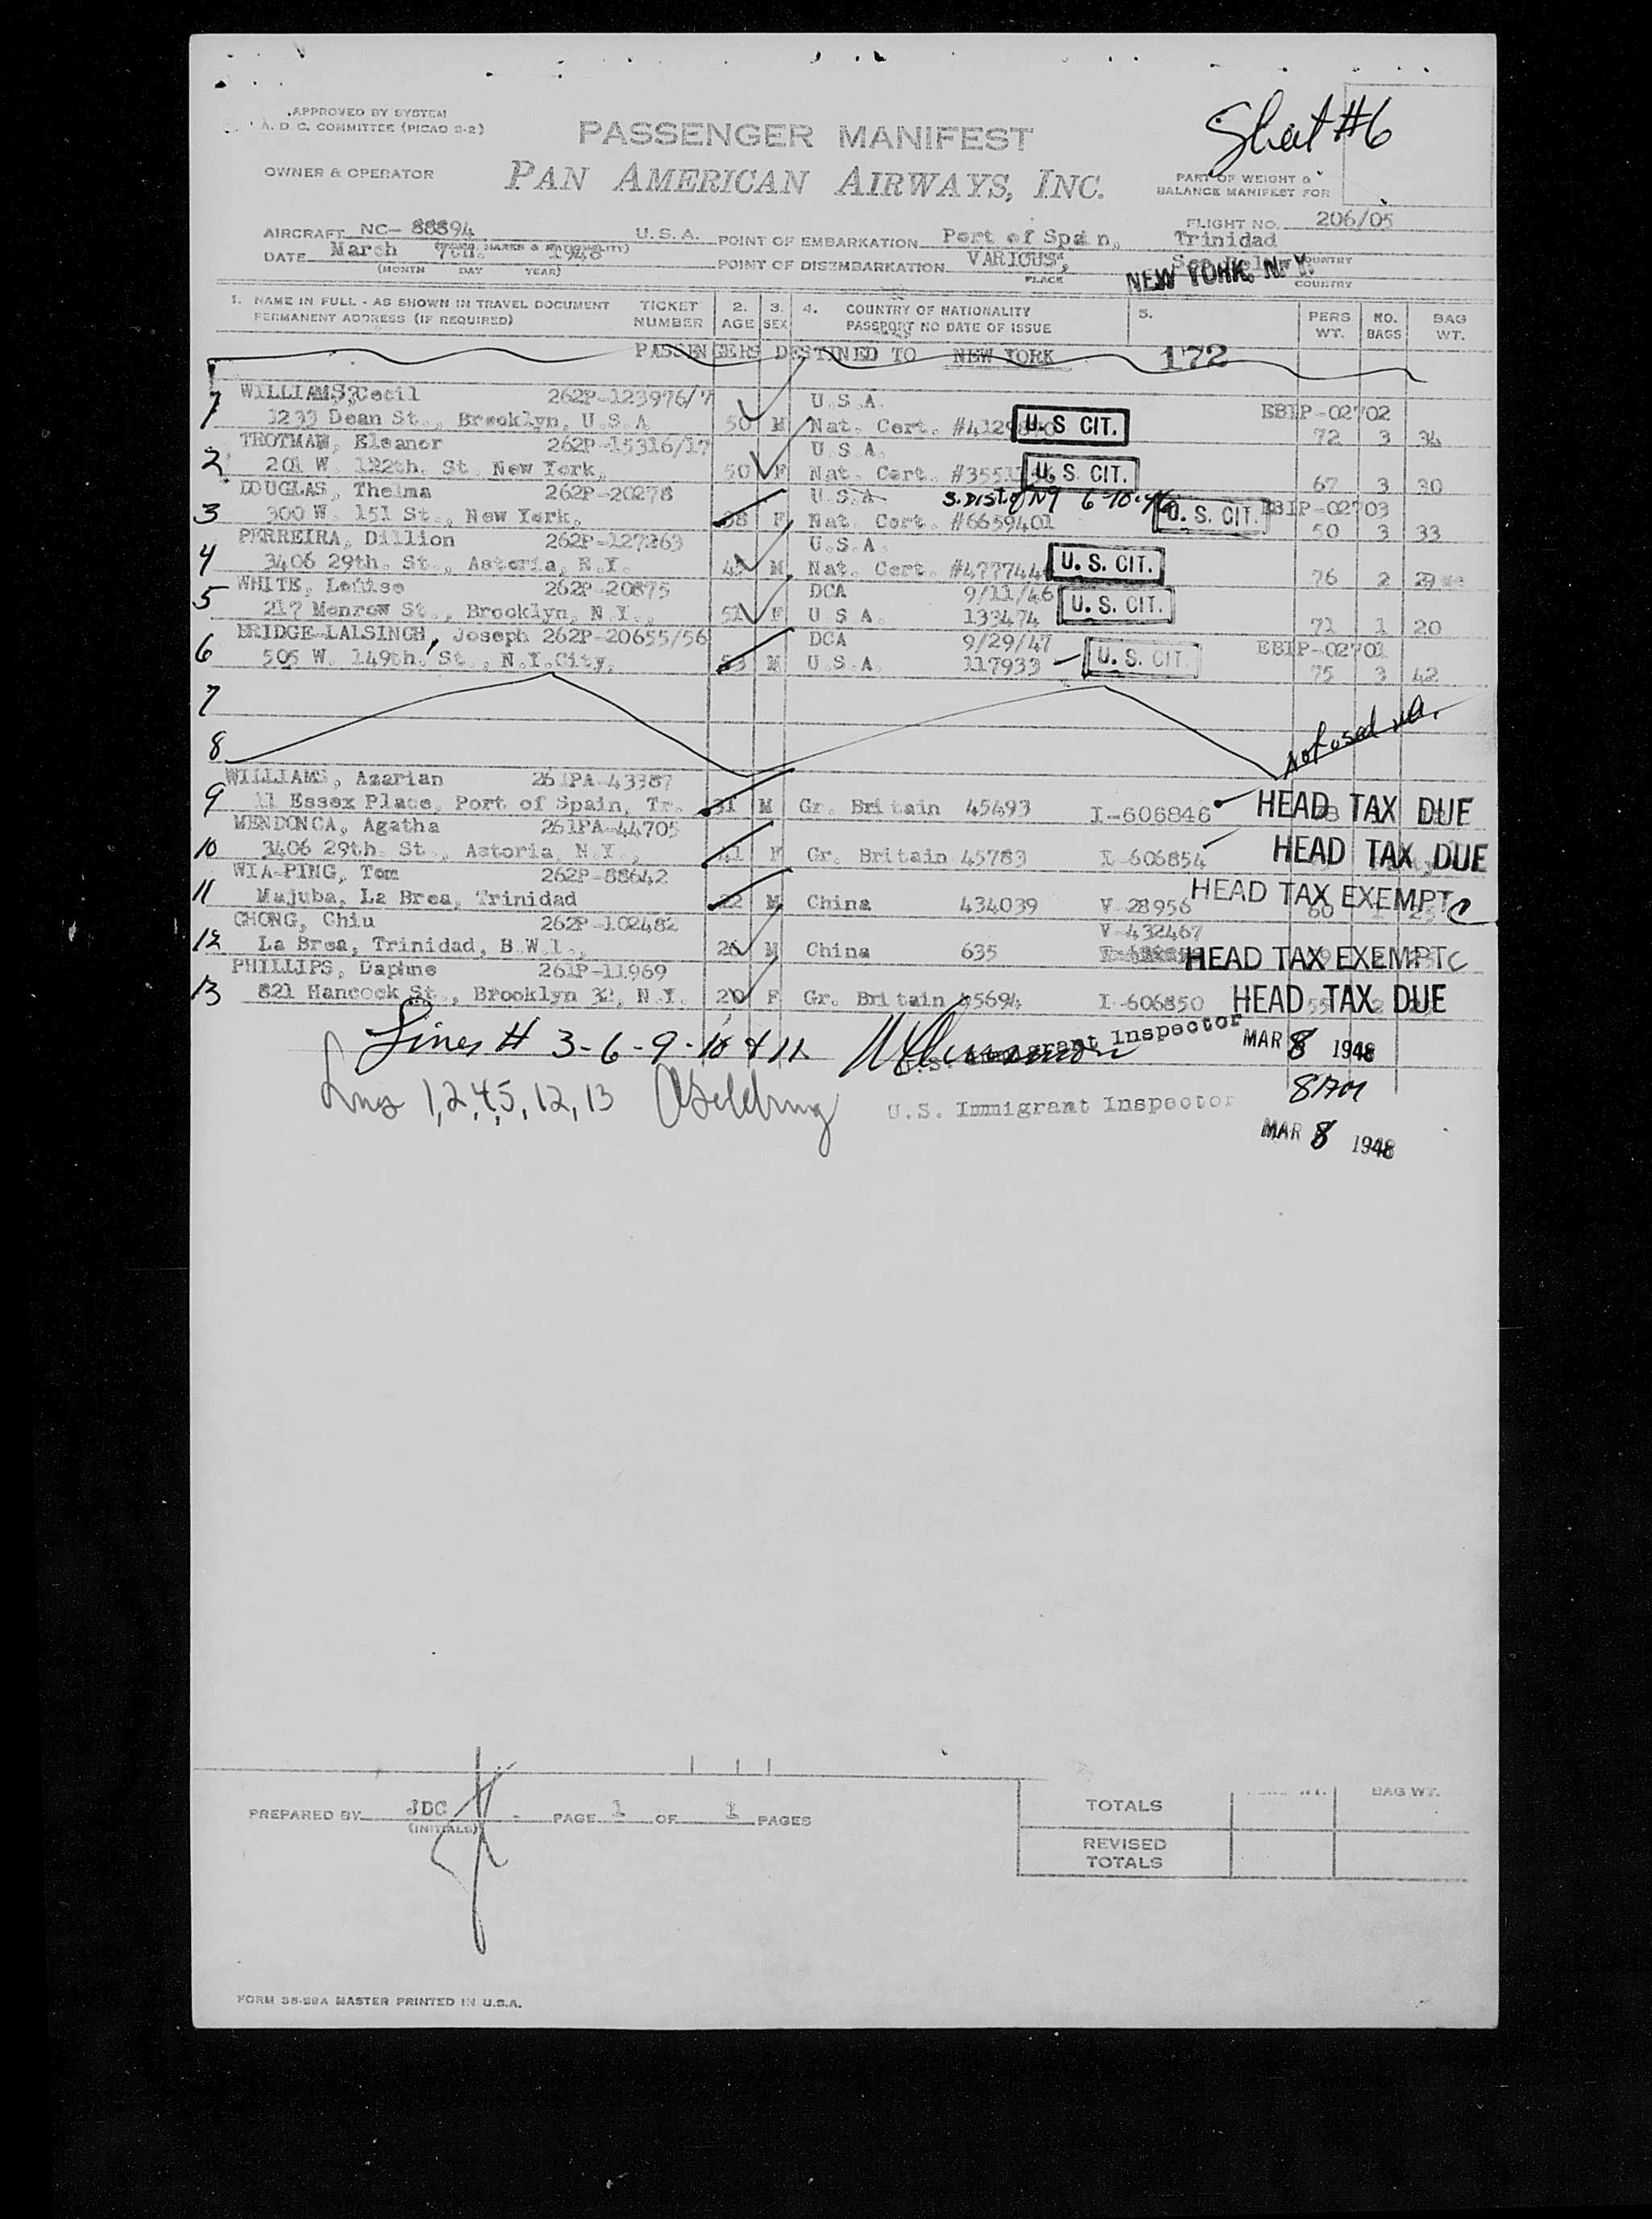 Sheet #6
APPROVED BY SYSTEM
A. D. C. COMMITTEE (PICAO S-2)
PASSENGER MANIFEST
OWNER & OPERATOR
PAN AMERICAN AIRWAYS, INC.
PART OF WEIGHT &
BALANCE MANIFEST FOR
FLIGHT NO. 206/05
AIRCRAFT NC- 88894 U.S.A. POINT OF EMBARKATION Port of Spain, Trinidad
DATE March 7th. 1948 POINT OF DISEMBARKATION VARIOUS, NEW YORK, N. Y.
(MONTH DAY YEAR) PLACE COUNTRY
1. NAME IN FULL - AS SHOWN IN TRAVEL DOCUMENT TICKET 2. 3. 4. COUNTRY OF NATIONALITY 5. PERS NO. BAG
PERMANENT ADDRESS (IF REQUIRED) NUMBER AGE SEX PASSPORT NO DATE OF ISSUE WT. BAGS WT.
PASSENGERS DESTINED TO NEW YORK 172
WILLIAMS, Cecil 262P-123976/7 U.S.A. EBIP-02702
1 1233 Dean St., Brooklyn, U.S.A 50 M Nat. Cert. U.S CIT. 72 3 34
TROTMAN, Eleanor 262P-15316/17 U.S.A.
2 201 W. 122th. St New York, 50 F Nat. Cert. U. S. CIT. 67 3 30
DOUGLAS, Thelma 262P-20278 U.S.A. S. Dist. of NY EBIP-02703
3 300 W. 151 St., New York, 38 F Nat. Cert. #6659401 U. S. CIT. 50 3 33
PERREIRA, Dillion 262P-127263 U.S.A.
4 3406 29th. St., Astoria, N.Y. M Nat. Cert. U. S. CIT. 76 2 29
WHITE, Louise 262P-20875 DCA 9/11/46
5 217 Monrow St., Brooklyn, N.Y., 51 F U S A. 133474 U. S. CIT. 71 1 20
BRIDGE-LALSINGH, Joseph 262P-20655/56 DCA 9/29/47 EBIP-02701
6 505 W. 149th. St., N.Y.City, 53 M U.S.A. 117933 U. S. CIT. 75 3 42
7
8 Not used
WILLIAMS, Azarian 261PA-43387
9 11 Essex Place, Port of Spain, Tr. 31 M Gr. Britain 45493 I-606846 HEAD TAX DUE
MENDONCA, Agatha 261PA-44705
10 3406 29th. St., Astoria, N.Y., 41 F Gr. Britain 45783 I-606854 HEAD TAX DUE
WIA-PING, Tom 262P-88642
11 Majuba, La Brea, Trinidad 22 M China 434039 V-28956 HEAD TAX EXEMPT C
CHONG, Chiu 262P-102482 V-432467
12 La Brea, Trinidad, B.W.I., 26 M China 635 HEAD TAX EXEMPT C
PHILLIPS, Daphne 261P-11969
13 821 Hancock St., Brooklyn 32, N.Y. 20 F Gr. Britain 45694 I-606850 HEAD TAX DUE
Lines # 3-6-9-10 & 11 U.S. Immigrant Inspector MAR 8 1948
Lines 1,2,4,5, 12, 13 U.S. Immigrant Inspector
MAR 8 1948
PREPARED BY JDC PAGE 1 OF 1 PAGES
(INITIALS)
TOTALS BAG WT.
REVISED
TOTALS
FORM 35-29A MASTER PRINTED IN U.S.A.